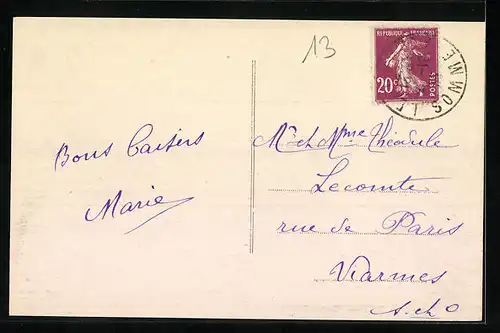 13
REPUBLIQUE FRANÇAISE
20c
POSTES
SOMME
Bons Baisers
Marie
Mr et Mme Théodule
Lecomte
rue de Paris
Viarmes
S. et O